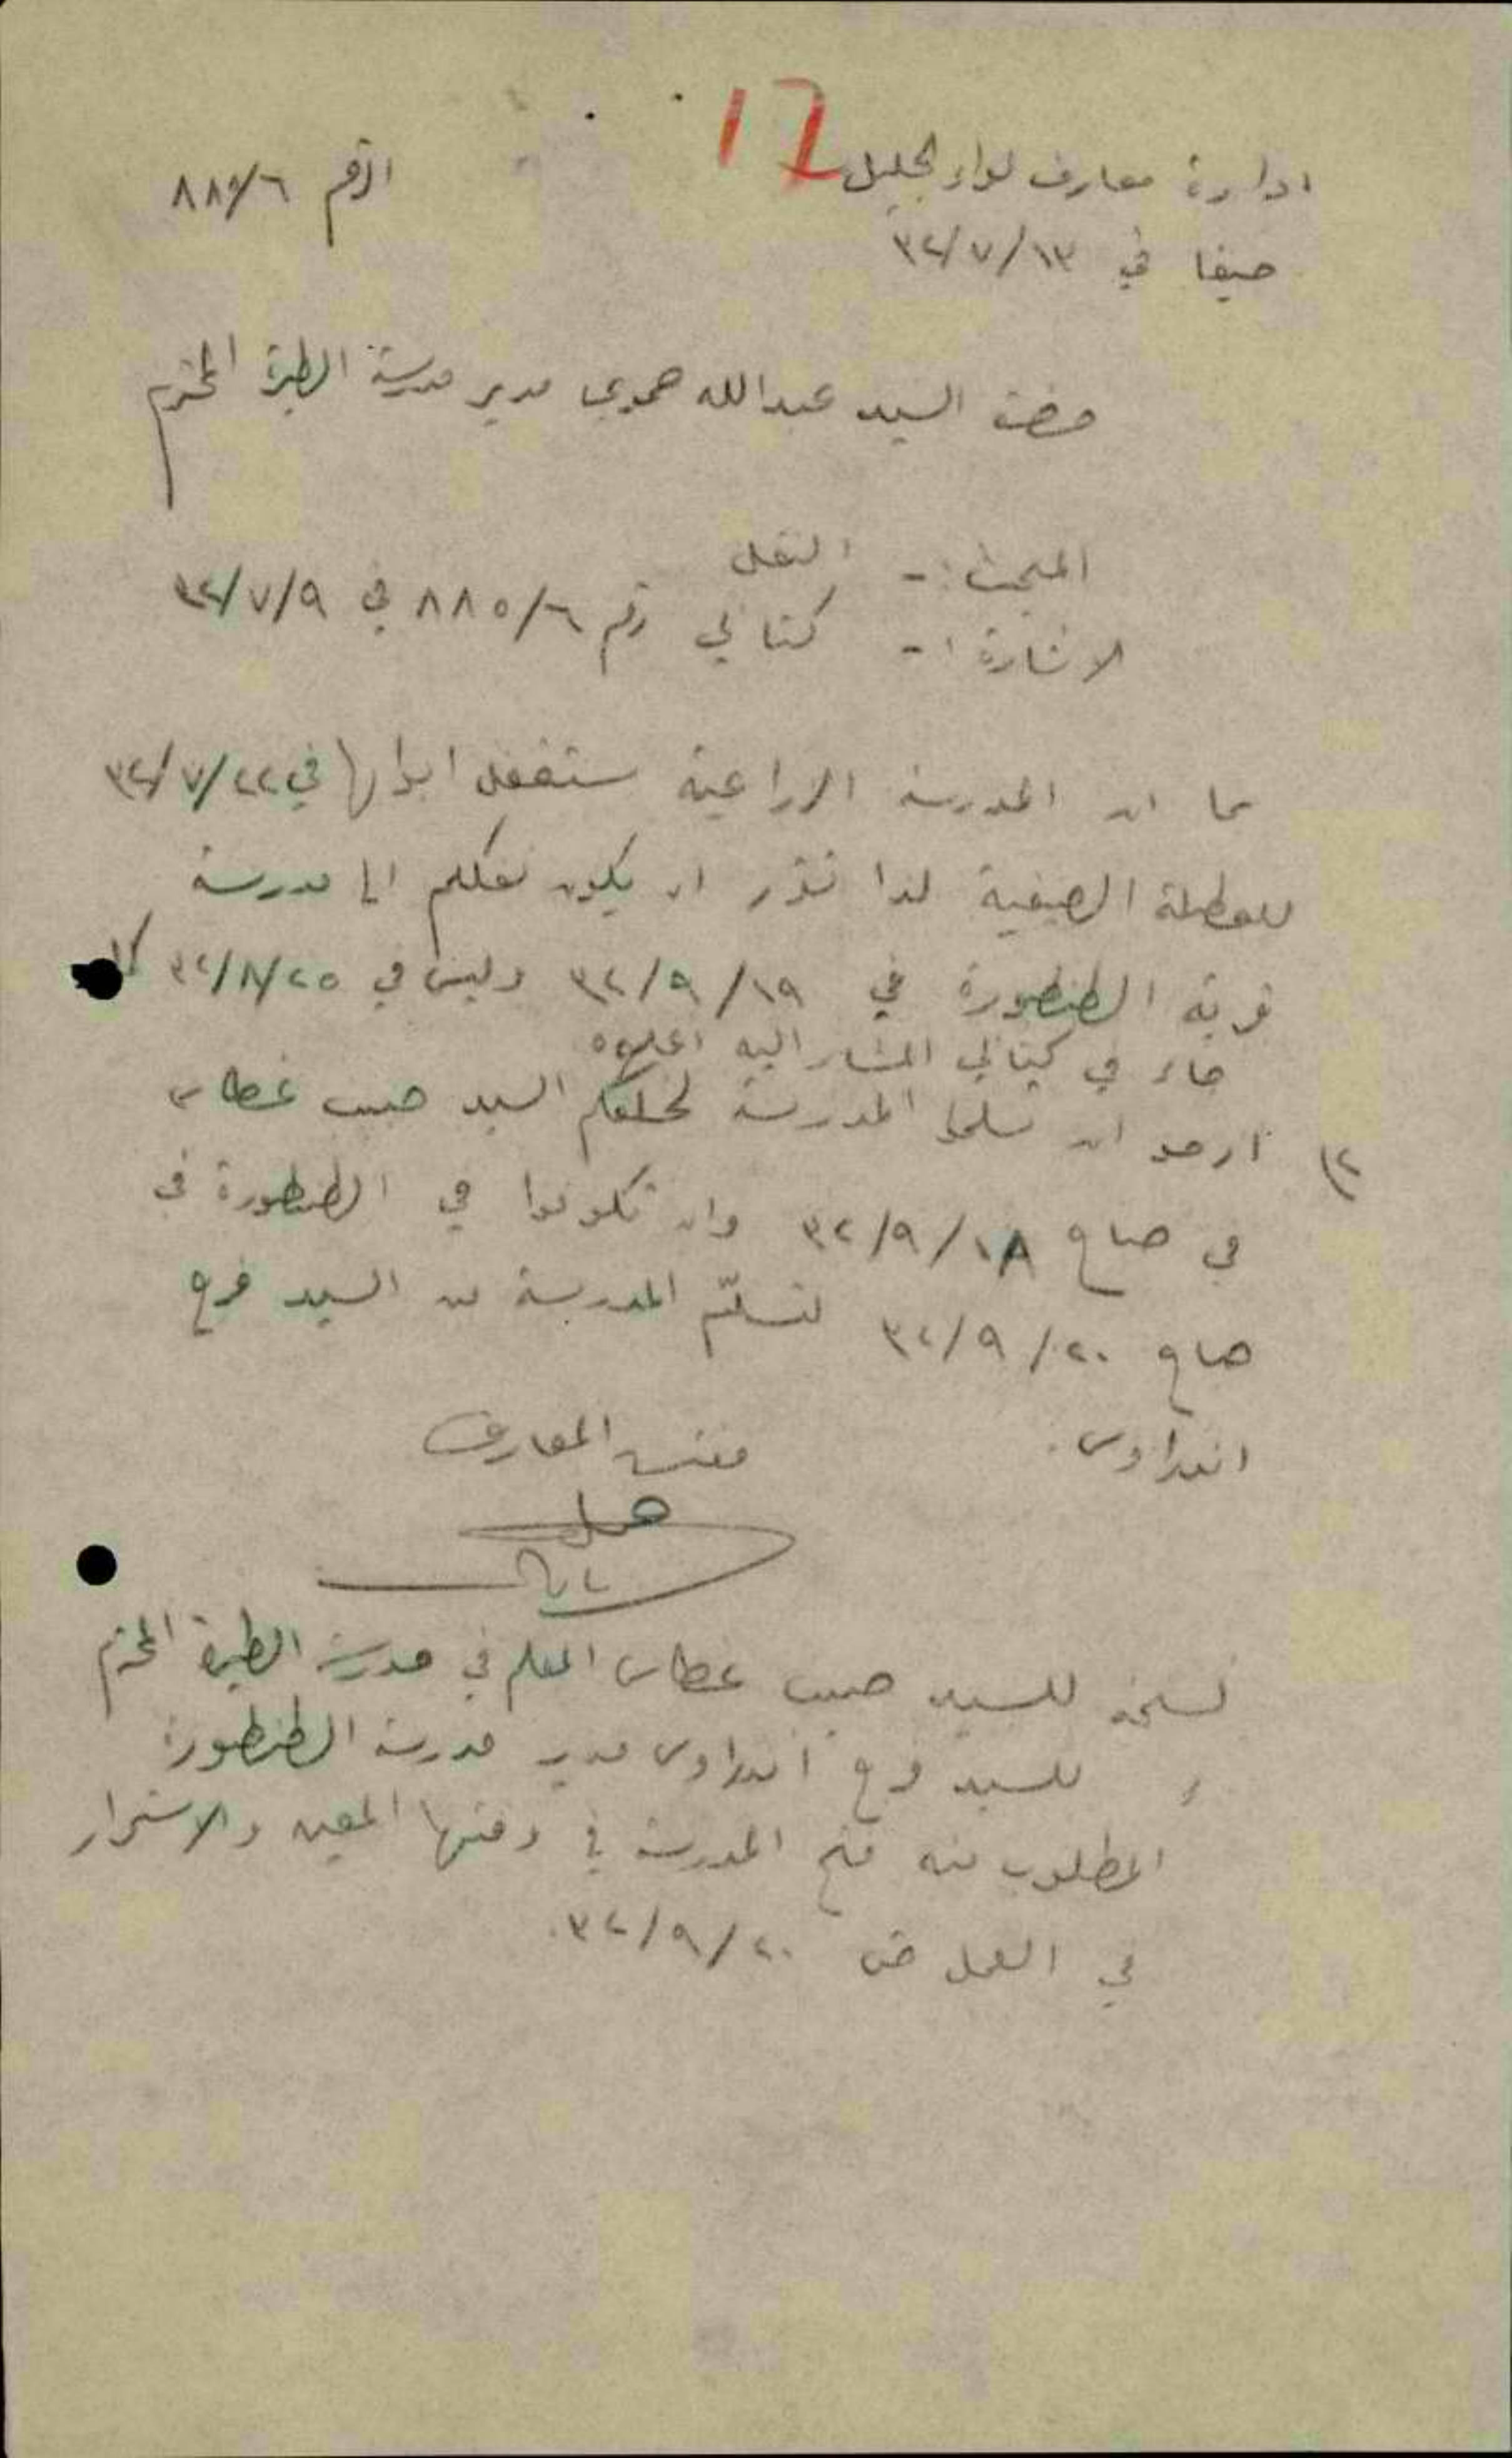 17
ادارة معارف لواء الجليل
الرقم ٨٨٥/٦
حيفا في ٣٢/٧/١٣
حضرة السيد عبدالله حمودي مدير مدرسة الطيرة المحترم
المبحث :- النقل
الاشارة :- كتابي رقم ٨٨٥/٦ في ٣٢/٧/٩
بما ان المدرسة الزراعية ستقفل ابوابها في ٣٢/٧/٢٢
للعطلة الصيفية لذا تقرر ان يكون نقلكم الى مدرسة
قرية الطنطورة في ٣٢/٩/١٩ وليس في ٣٢/٨/٢٥ كما
جاء في كتابي المشار اليه اعلاه
٢) ارجو ان تسلموا المدرسة لخلفكم السيد حبيب غطاس
في صباح ٣٢/٩/١٨ وان تكونوا في الطنطورة في
صباح ٣٢/٩/٢٠ لتسلّم المدرسة من السيد فرح
اندراوس.
مفتش المعارف
نسخة للسيد حبيب غطاس المعلم في مدرسة الطيرة المحترم
للسيد فرح اندراوس مدير مدرسة الطنطورة
المطلوب منه فتح المدرسة في وقتها المعين والاستمرار
في العمل حتى ٣٢/٩/٢٠.